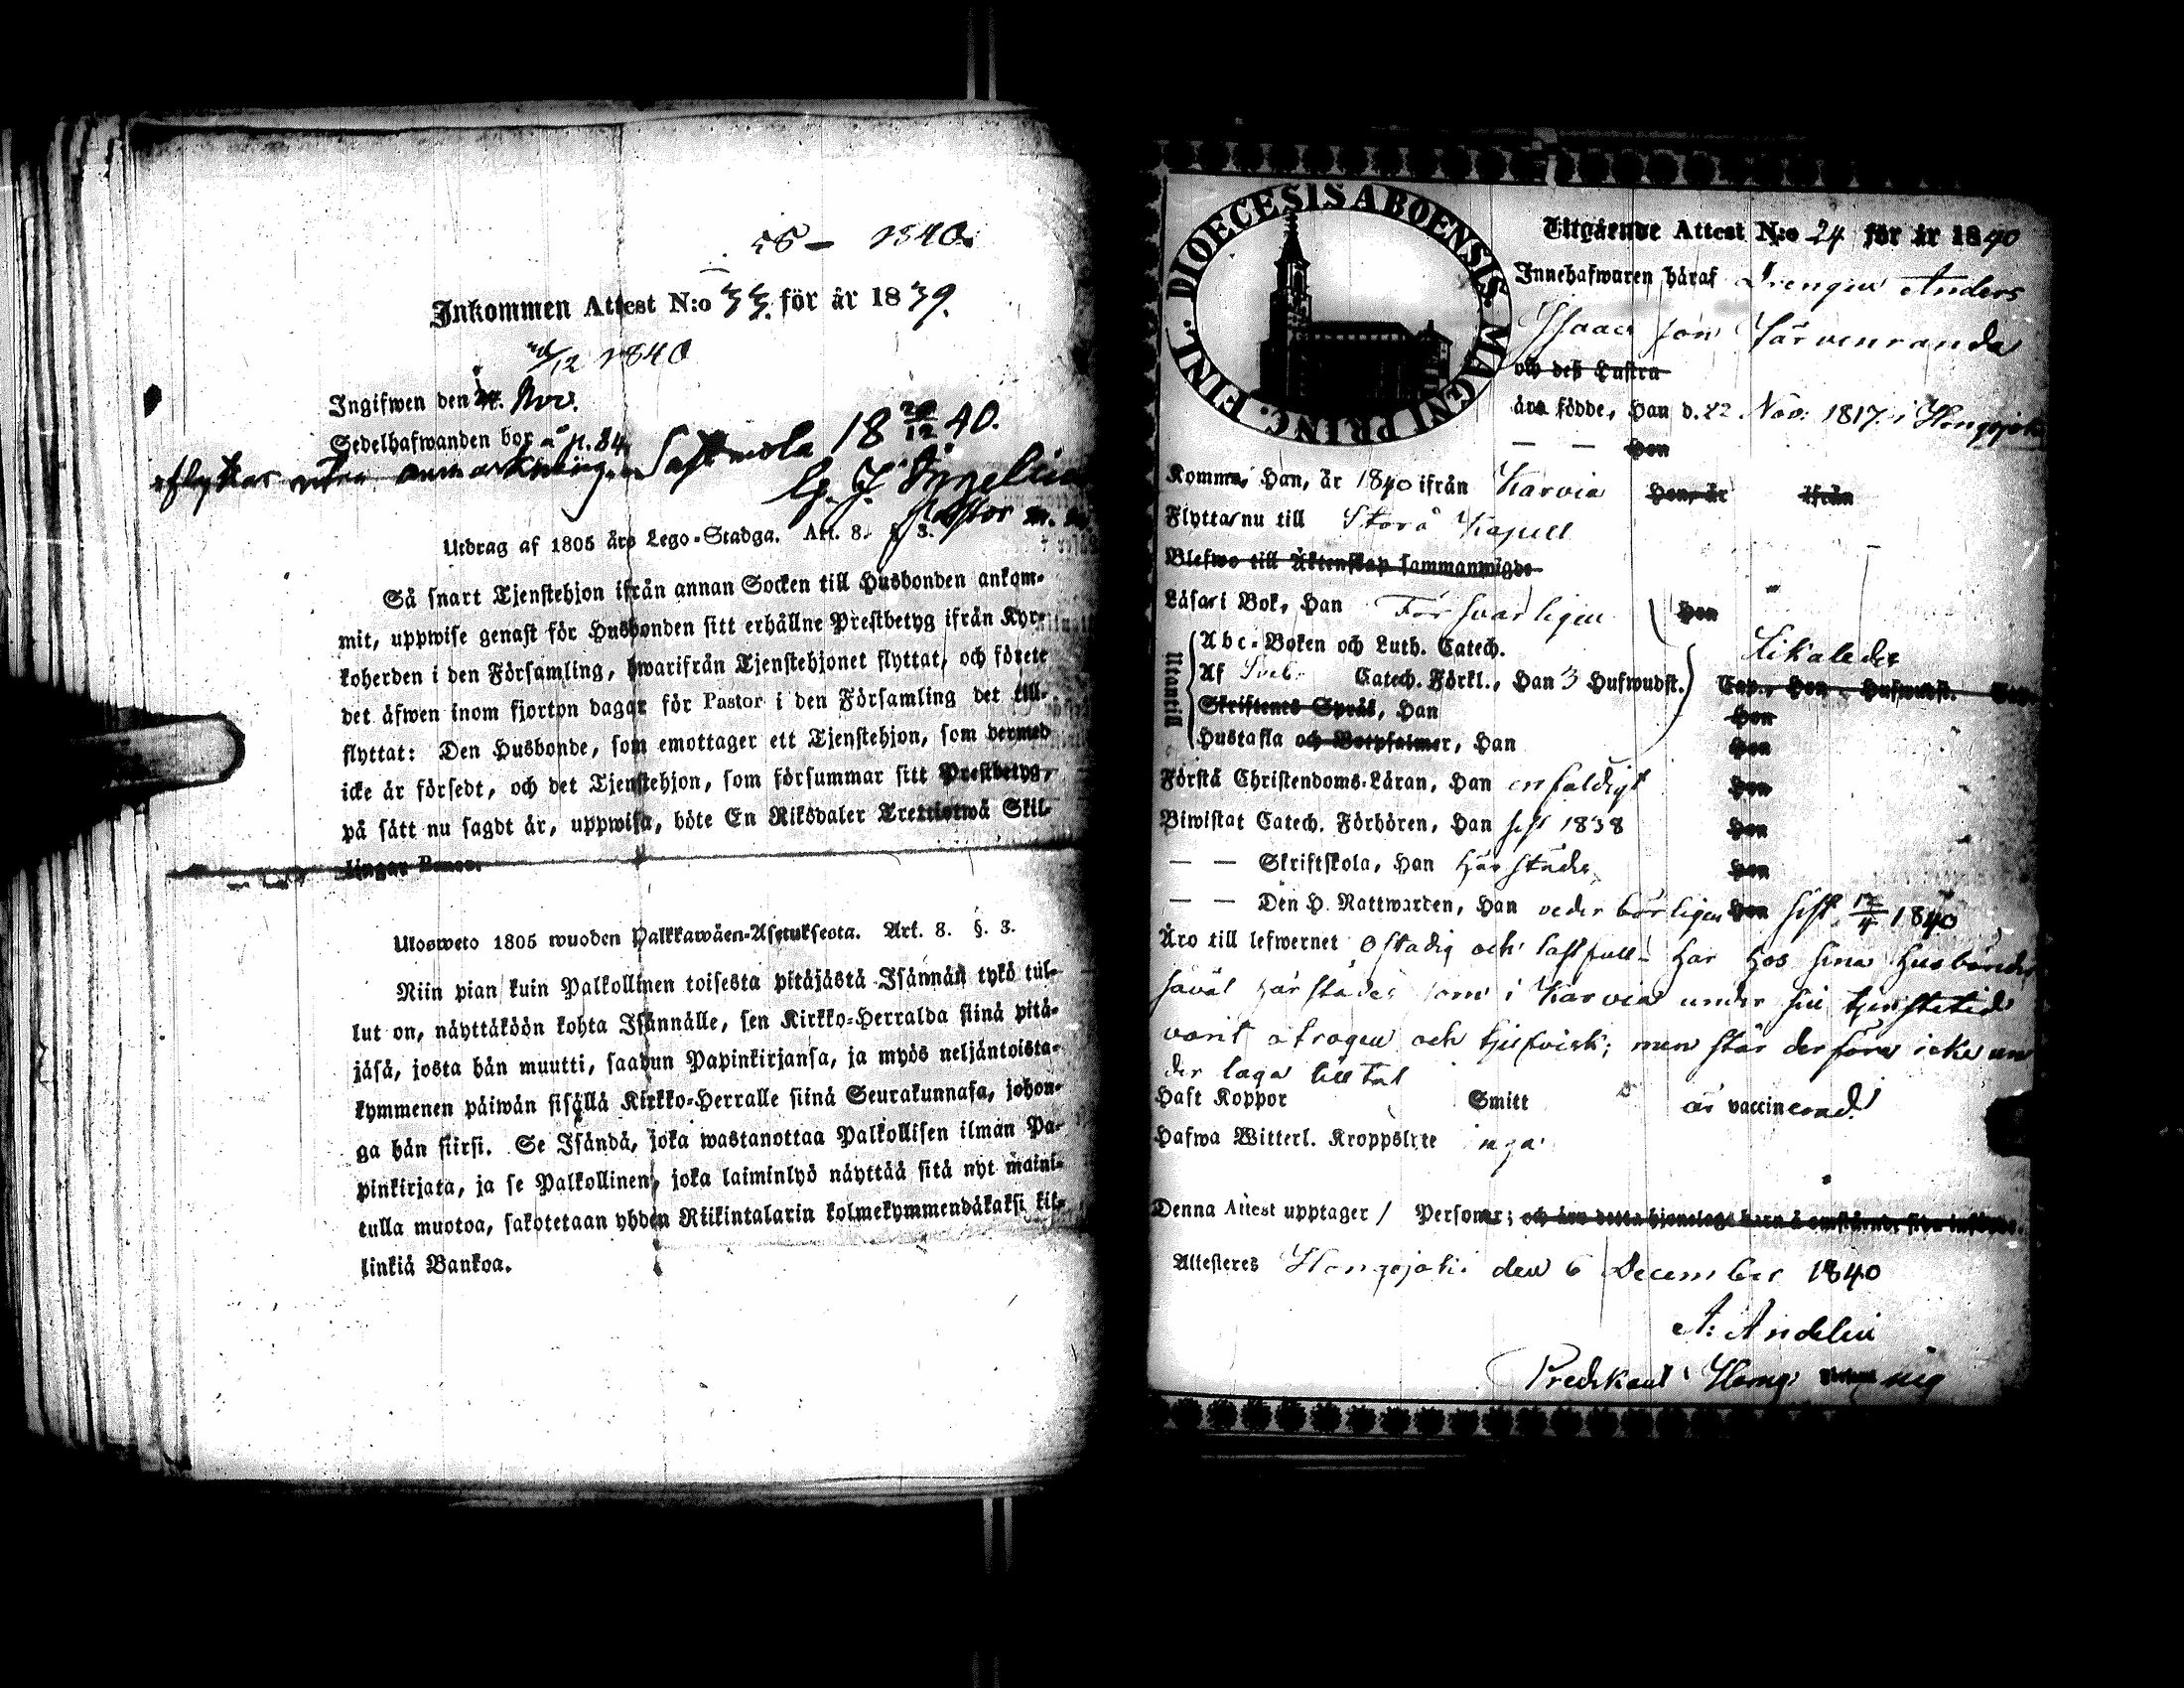 56 - 1840.
Inkommen Attest N:o 33. för år 1839.
/12 1840
Ingifwen den 24. Nov.
Sedelhafwanden bor å p. 84
aflyttar utan anmärkning. Sastmola 18 20/12 40.
Pastor
Utdrag af 1805 års Lego-Stadga. Art. 8. §. 3.
Så snart Tjenstehjon ifrån annan Socken till Husbonden ankom-
mit, uppwise genast för Husbonden sitt erhållne Prestbetyg ifrån Kyr-
koherden i den Församling, hwarifrån Tjenstehjonet flyttat, och förete
det äfwen inom fjorton dagar för Pastor i den Församling det till-
flyttat: Den Husbonde, som emottager ett Tjenstehjon, som dermed
icke är försedt, och det Tjenstehjon, som försummar sitt Prestbetyg,
på sätt nu sagdt är, uppwisa, böte En Riksdaler Trettiotwå Skil-
lingar Banco.
Ulosweto 1805 wuoden Palkkawäen-Asetuksesta. Art. 8. §. 3.
Niin pian kuin Palkollinen toisesta pitäjästä Isännän tykö tul-
lut on, näyttäköön kohta Isännälle, sen Kirkko-Herralda siinä pitä-
jäsä, josta hän muutti, saadun Papinkirjansa, ja myös neljäntoista-
kymmenen päiwän sisällä Kirkko-Herralle siinä Seurakunnasa, johon-
ga hän siirsi. Se Isändä, joka wastanottaa Palkollisen ilman Pa-
pinkirjata, ja se Palkollinen, joka laiminlyö näyttää sitä nyt maini-
tulla muotoa, sakotetaan yhden Riikintalarin kolmekymmendäkaksi kil-
linkiä Bankoa.
DIOECESIS ABOENSIS. MAGNI PRINC. FINL.
Utgående Attest N:o 24 för år 1840
Innehafwaren häraf Drengen Anders
Isaacs son Järvenranda
och deß Hustru
äro födde, Han d. 22 Nov: 1817 i Hongojoki
— — Hon
Komme, Han, år 1840 ifrån Karvia Hon, år ifrån
Flyttar nu till Storå Kapell
Blefwo till Äktenskap sammanwigde
Läsar i Bok, Han Försvarligen Hon
Utantill
Abc-Boken och Luth. Catech. Likaledes
Af Sveb. Catech. Förkl., Han 3 Hufwudst. Cap., Hon Hufwudst. Cap.
Skriftenes Språk, Han Hon
Hustafla och Botpsalmer, Han Hon
Förstå Christendoms-Läran, Han enfaldigt Hon
Biwistat Catech. Förhören, Han sist 1838 Hon
— — Skriftskola, Han härstädes Hon
— — Den H. Nattwarden, Han vederbörligen Hon sist 17/4 1840
Äro till lefwernet ostadig och lastfull - har hos sina husbönder
såväl härstädes som i Karvia under sin tjenstetid
varit otrogen och tjufvisk; men står derföre icke un
der laga tilltal
Haft Koppor Smitt är vaccinerad
Hafwa Witterl. Kroppslyte inga
Denna Attest upptager 1 Personer; och äro detta hjonelags barn å omstående sida införde.
Attesteres Hongojoki den 6 December 1840
A: Andelin
Predikant i Hong: